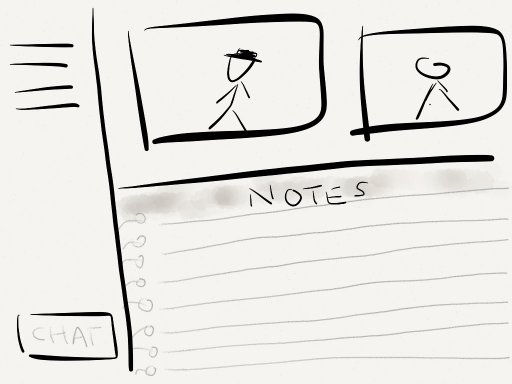 NOTES
CHAT